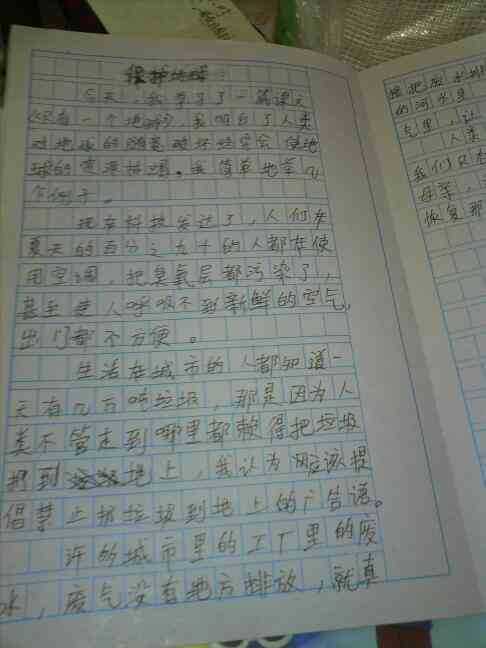 保护地球
今天，我学习了一篇课文
《只有一个地球》，我明白了人类
对地球的随意破坏
球的资源枯竭。我简单地举几
个例子。
现在科技发达了，人们在
夏天的百分之九十的人都在使
用空调，把臭氧层都污染了，
甚至使人呼吸不到新鲜的空气，
出门都不方便。
生活在城市的人都知道一
天有几万吨垃圾，那是因为人
类不管走到哪里都赖得把垃圾
扔到地上，我认为应该提
倡禁止扔垃圾到地上的广告语。
许的城市里的工厂里的废
水，废气没有地方排放，就真
接把废水排
的河水里
气里，让
人类
我们只有
母亲，
恢复那